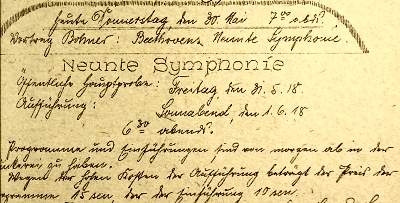 Heute Donnerstag, den 30. Mai 7⁰⁰ abds.
Vortrag Bohner: Beethovens Neunte Symphonie.
Neunte Symphonie
Öffentliche Hauptprobe: Freitag, den 31.5.18.
Aufführung: Sonnabend, den 1.6.18
6³⁰ abends.
Programme und Einführungen sind von morgen ab in der
zu haben.
Wegen der hohen Kosten der Aufführung beträgt der Preis der
15 sen, der der Einführung 10 sen.